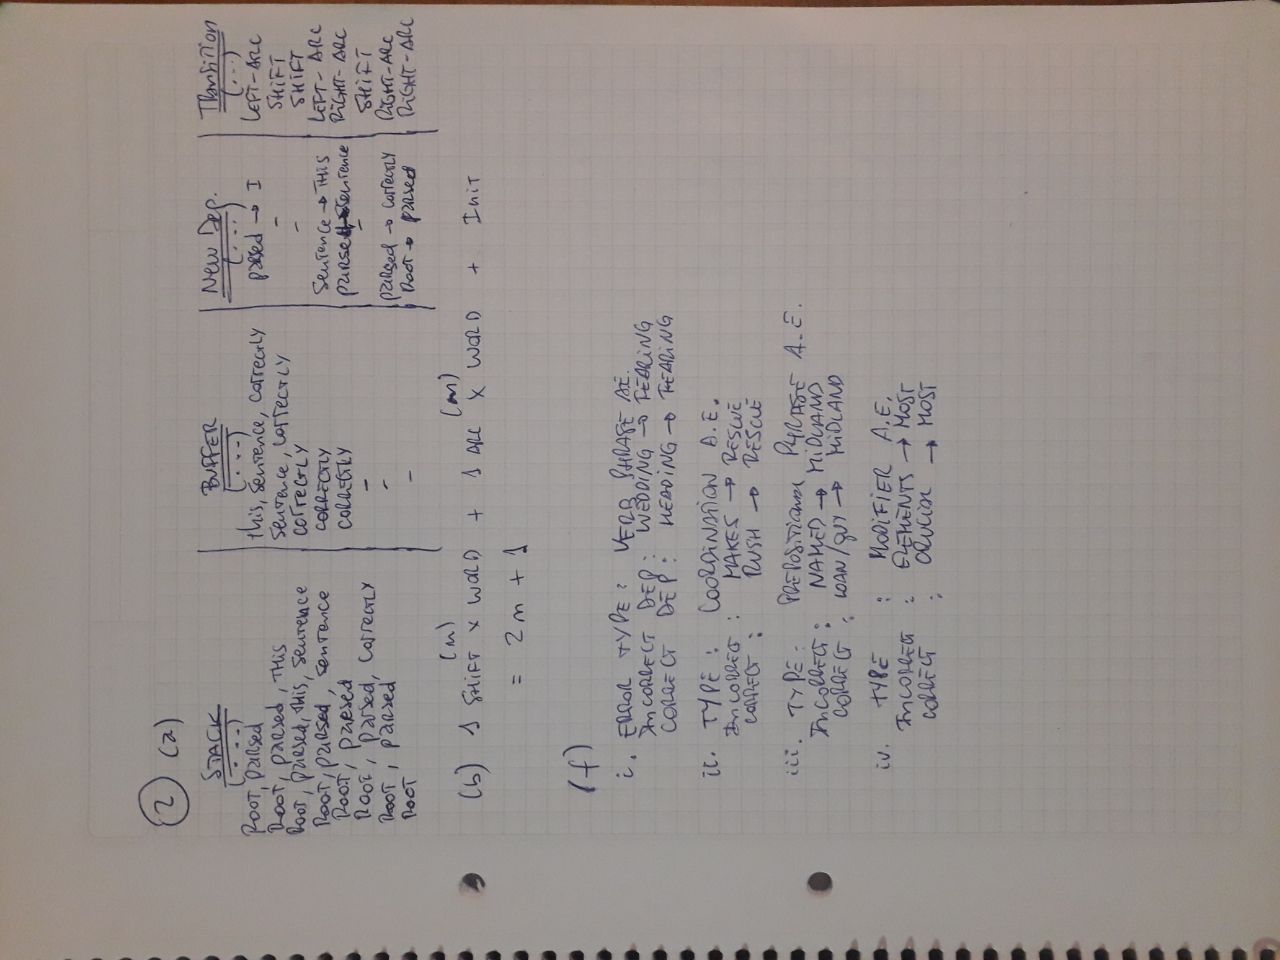 2 (a)
STACK BUFFER New Dep. Transition
(...) (...) (...) (...)
Root, parsed this, sentence, correctly parsed → I LEFT-ARC
Root, parsed, this sentence, correctly - SHIFT
Root, parsed, this, sentence correctly - SHIFT
Root, parsed, sentence correctly sentence → this LEFT-ARC
Root, parsed correctly parsed → sentence RIGHT-ARC
Root, parsed, correctly - - SHIFT
Root, parsed - parsed → correctly RIGHT-ARC
Root - Root → parsed RIGHT-ARC
(n) (n)
(b) 1 SHIFT x WORD + 1 ARC x WORD + Init
= 2n + 1
(f)
i. ERROR TYPE: VERB PHRASE A.E.
INCORRECT DEP: WEDDING → FEARING
CORRECT DEP: HEADING → FEARING
ii. TYPE: COORDINATION A.E.
INCORRECT: MAKES → RESCUE
CORRECT: RUSH → RESCUE
iii. TYPE: PREPOSITIONAL PHRASE A.E.
INCORRECT: NAMED → MIDLAND
CORRECT: LOAN/GUY → MIDLAND
iv. TYPE : MODIFIER A.E.
INCORRECT : ELEMENTS → MOST
CORRECT : CRUCIAL → MOST